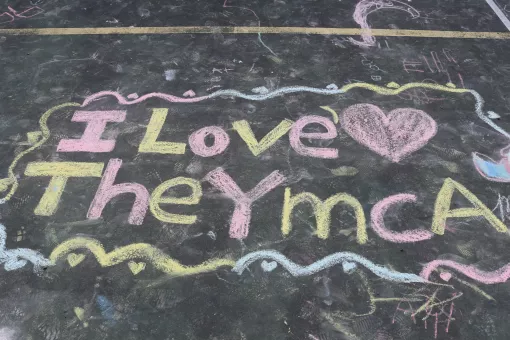 I Love
The YmcA